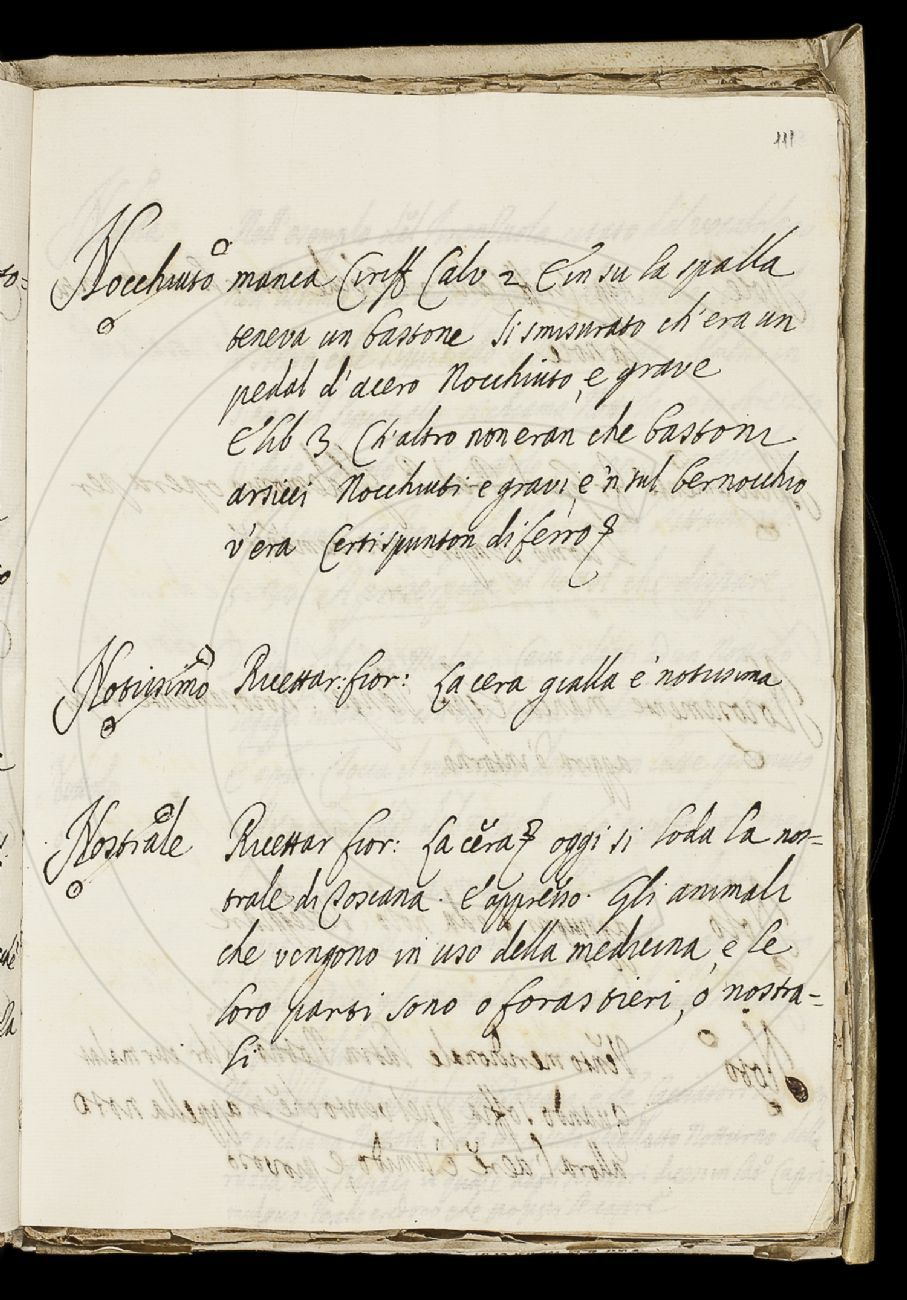 111
Nocchiuto manca Ciriff Calv 2 E in su la spalla
teneva un bastone si smisurato ch'era un
pedal d'acero Nocchiuto, e grave
E lib 3 Ch'altro non eran che bastoni
arsicci Nocchiuti e gravi, e 'n sul bernocchio
v'era Certi spunton di ferro
Notissimo Ricettar: fior: La cera gialla è notissima
Nostrale Ricettar fior: La cera oggi si loda la nos=
trale di Toscana. E appresso. Gli animali
che vengono in uso della medicina, e le
loro parti sono o forastieri, o nostra=
li